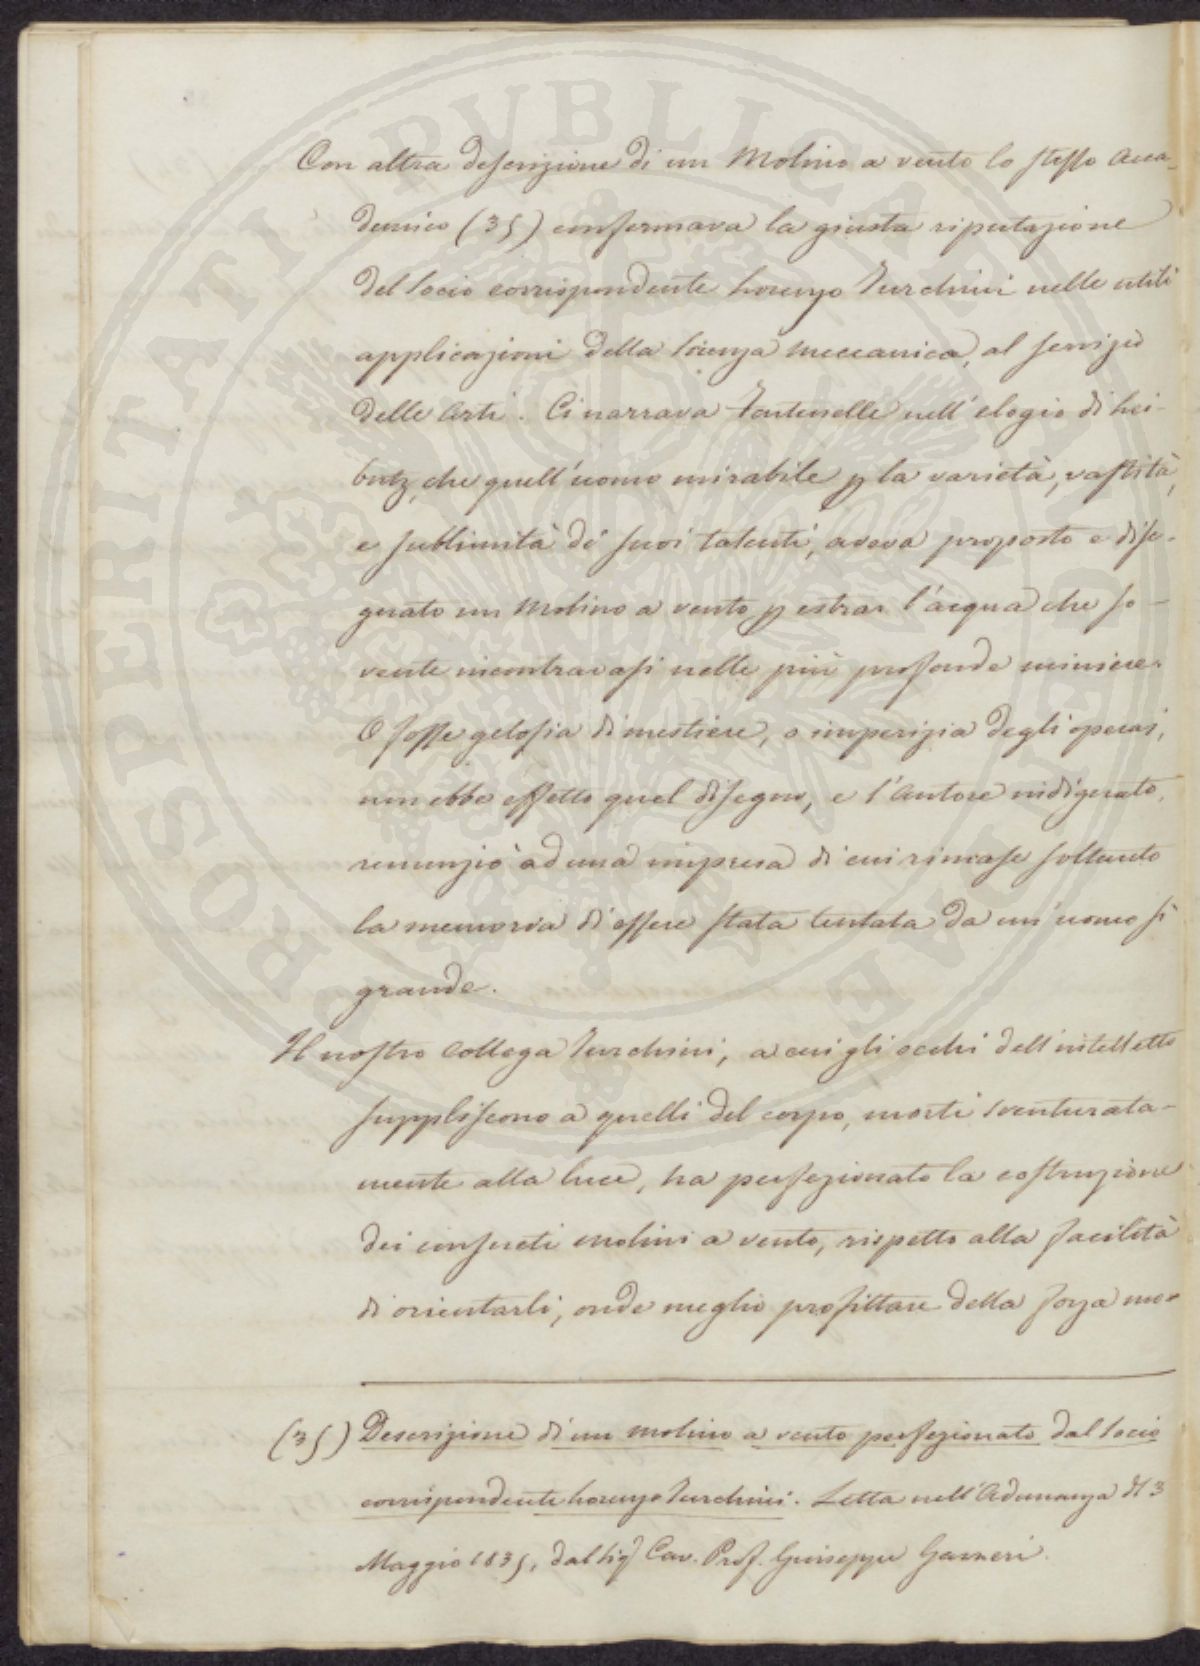 PROSPERITATI PUBLICAE
Con altra descrizione di un Molino a vento lo stesso Acca-
demico (35) confermava la giusta riputazione
del Socio corrispondente Lorenzo Turchini nelle utili
applicazioni della Scienza meccanica, al servizio
delle Arti. Ci narrava Fontenelle nell'elogio di Lei-
bnitz, che quell'uomo mirabile p la varietà, vastità,
e sublimità de' suoi talenti, aveva proposto e dise-
gnato un Molino a vento p estrar l'acqua che so-
vente incontravasi nelle più profonde miniere.
O fosse gelosia di mestiere, o imperizia degli operai,
non ebbe effetto quel disegno, e l'Autore indigerato,
renunziò ad una impresa di cui rimase soltanto
la memoria di essere stata tentata da un'uomo sì
grande.
Il nostro Collega Turchini, a cui gli occhi dell'intelletto
suppliscono a quelli del corpo, morti sventurata-
mente alla luce, ha perfezionato la costruzione
dei consueti molini a vento, rispetto alla facilità
di orientarli, onde meglio profittare della forza mo-
(35) Descrizione di un molino a vento perfezionato dal Socio
corrispondente Lorenzo Turchini. Letta nell'Adunanza dl 3
Maggio 1835, dal Sig Cav. Prof. Giuseppe Gazzeri.